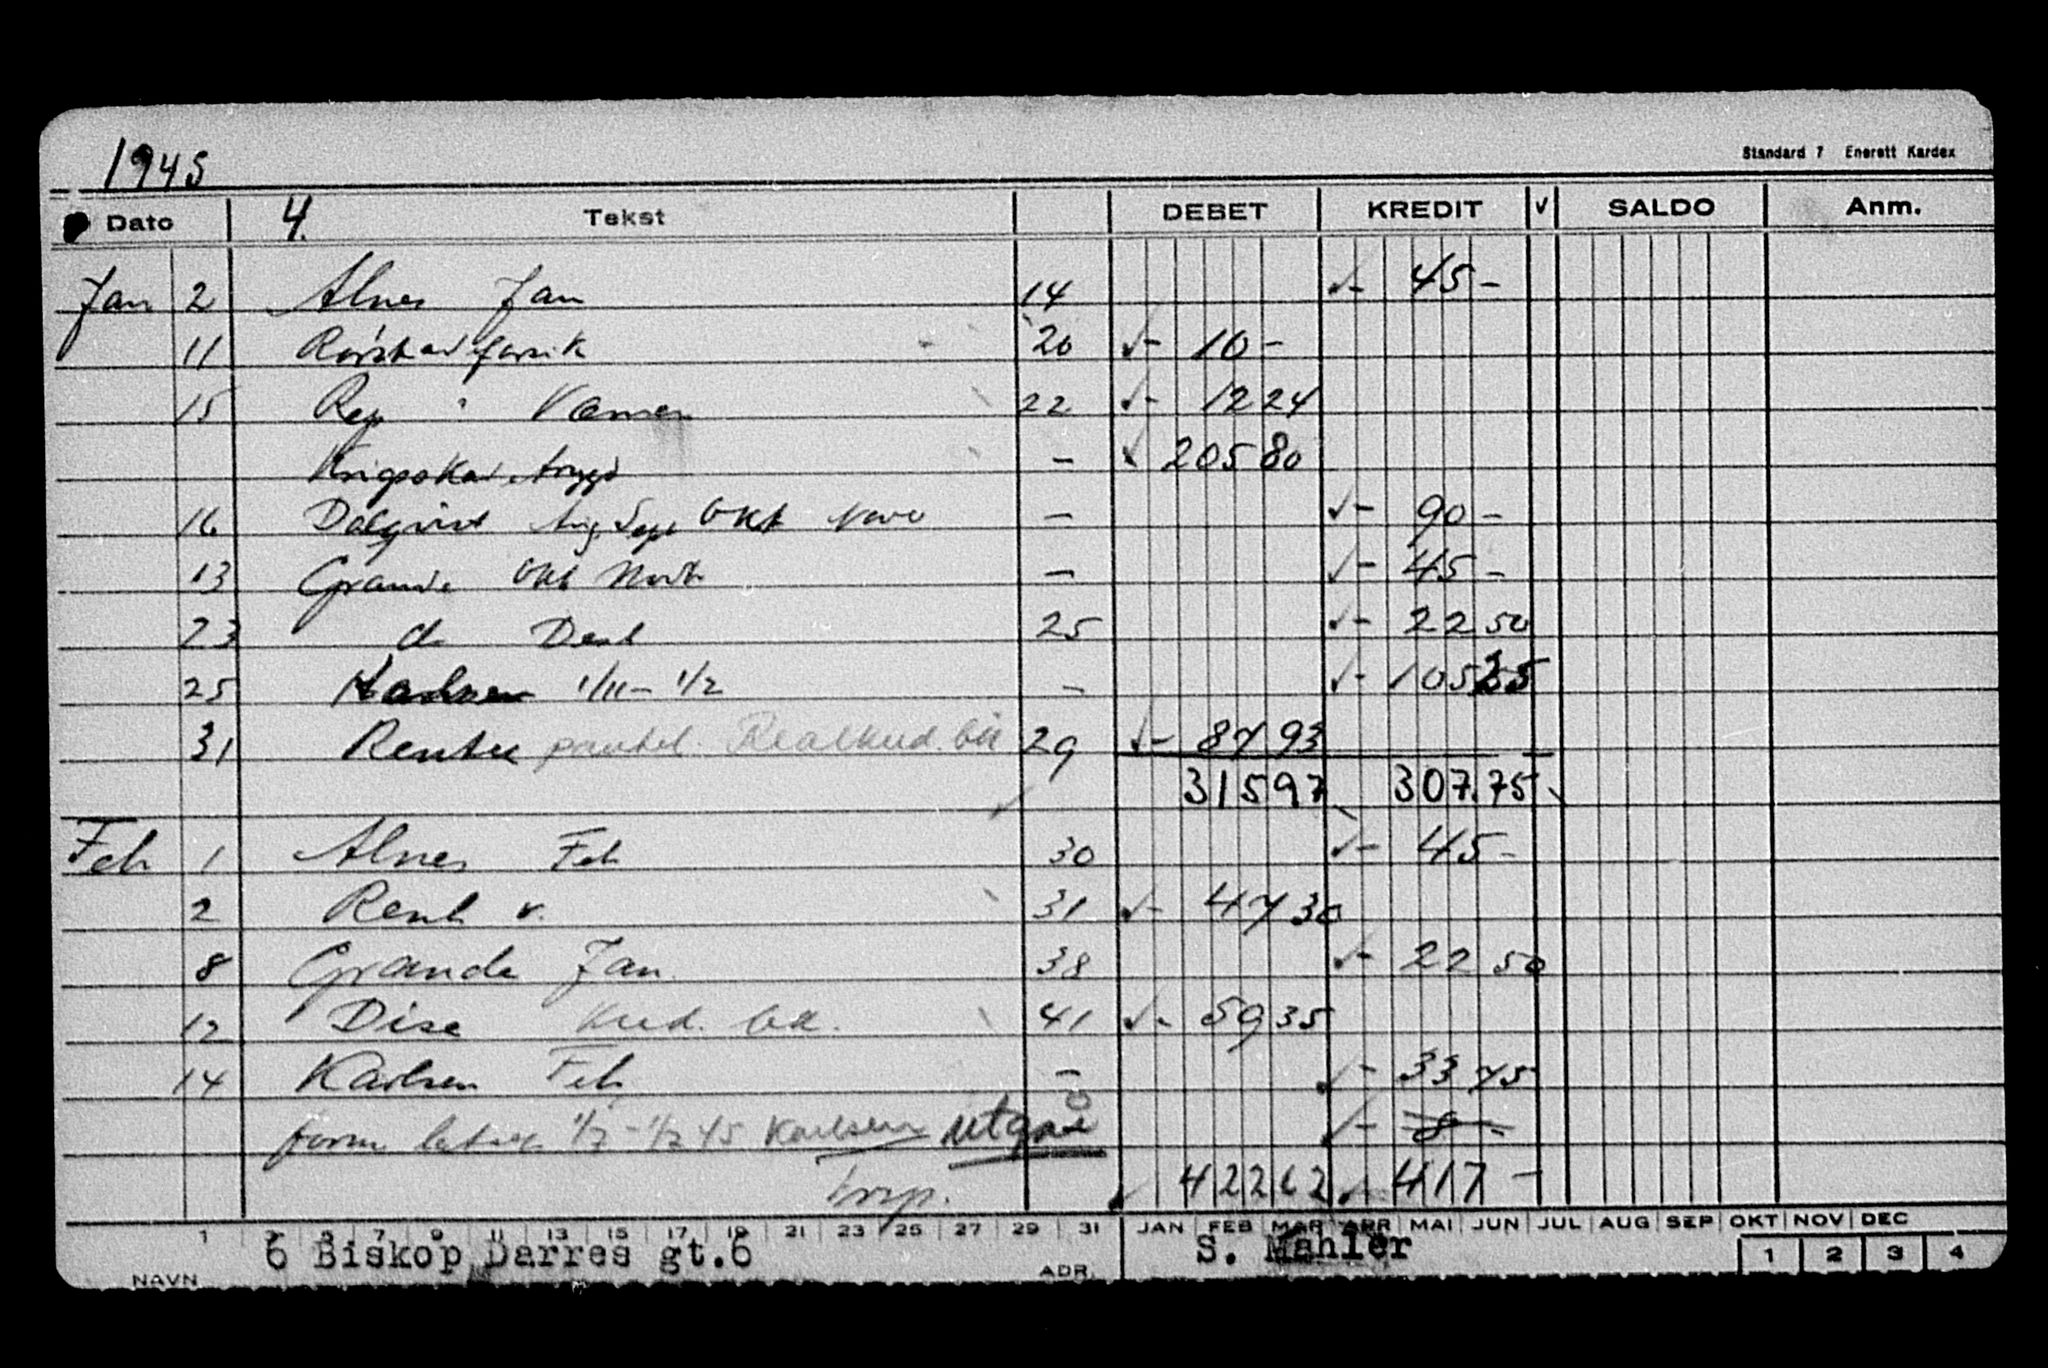 1945
Standard 7 Enerett Kardex
Dato 4. Tekst DEBET KREDIT V SALDO Anm.
Jan 2 Alnes Jan 14 45 -
11 20 10 -
15 Rep 22 12 24
Krigsskadetrygd - 205 80
16 Dalqvist Aug Sept Okt Nov - 90 -
13 Grande Okt Nov - 45 -
23 do Des 25 22 50
25 Karlsen 1/11 - 1/2 - 105 25
31 Renter pantel. Realkred. 29 87 93
315 97 307.75
Feb 1 Alnes Feb 30 45 -
2 Rent v. 31 47 30
8 Grande Jan. 38 22 50
12 Disc Kred. 41 59 35
14 Karlsen Feb - 33 75
1/2 - 1/2 45 Karlsen utgår
422 62 417 -
1 3 5 7 9 11 13 15 17 19 21 23 25 27 29 31 JAN FEB MAR APR MAI JUN JUL AUG SEP OKT NOV DEC
6 Biskop Darres gt.6 S. Mahler
NAVN ADR. 1 2 3 4